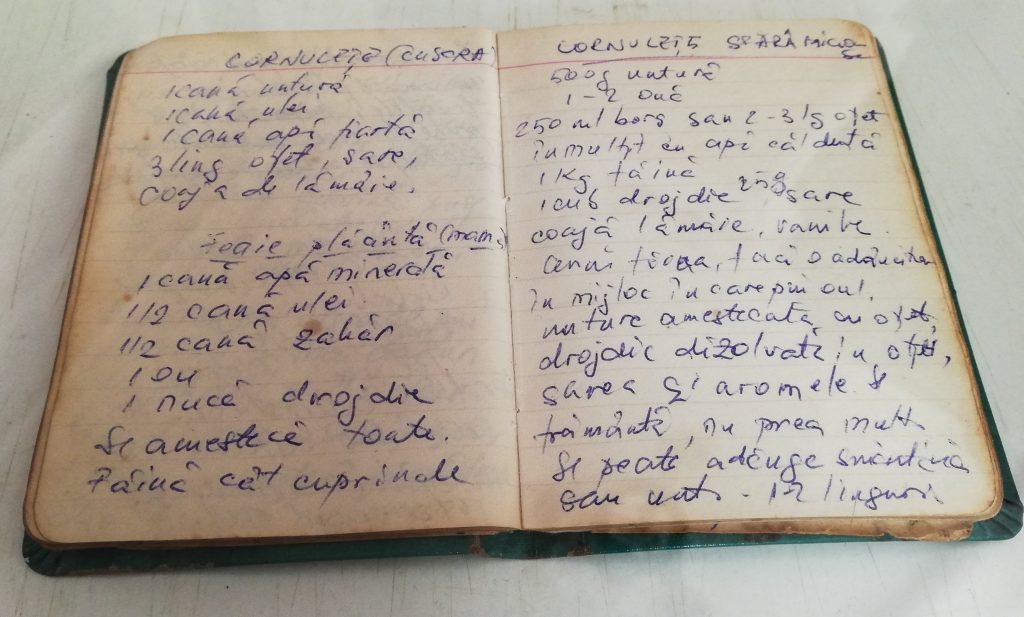 CORNULEȚE (CUSCRA)
1 cană untură
1 cană ulei
1 cană apă fiartă
3 ling oțet, sare,
coaja de lămâie.
Foaie plăântă (mam
1 cană apă minerală
1/2 cană ulei
1/2 cană zahăr
1 ou
1 nucă drojdie
Se amestecă toate.
Făină cât cuprinde
CORNULEȚE SFĂRÂMICIOASE
500g untură
1-2 ouă
250 ml borș sau 2-3 lg oțet
înmulțit cu apă călduță
1 Kg făină
1 cub drojdie 25g sare
coajă lămâie, vanilie.
Cerni făina, faci o adâncitură
în mijloc în care pui oul,
untura amestecată cu oțet,
drojdie dizolvată în oțet,
sarea și aromele se
frământă, nu prea mult
Se poate adăuga smântână
sau unt - 1-2 linguri